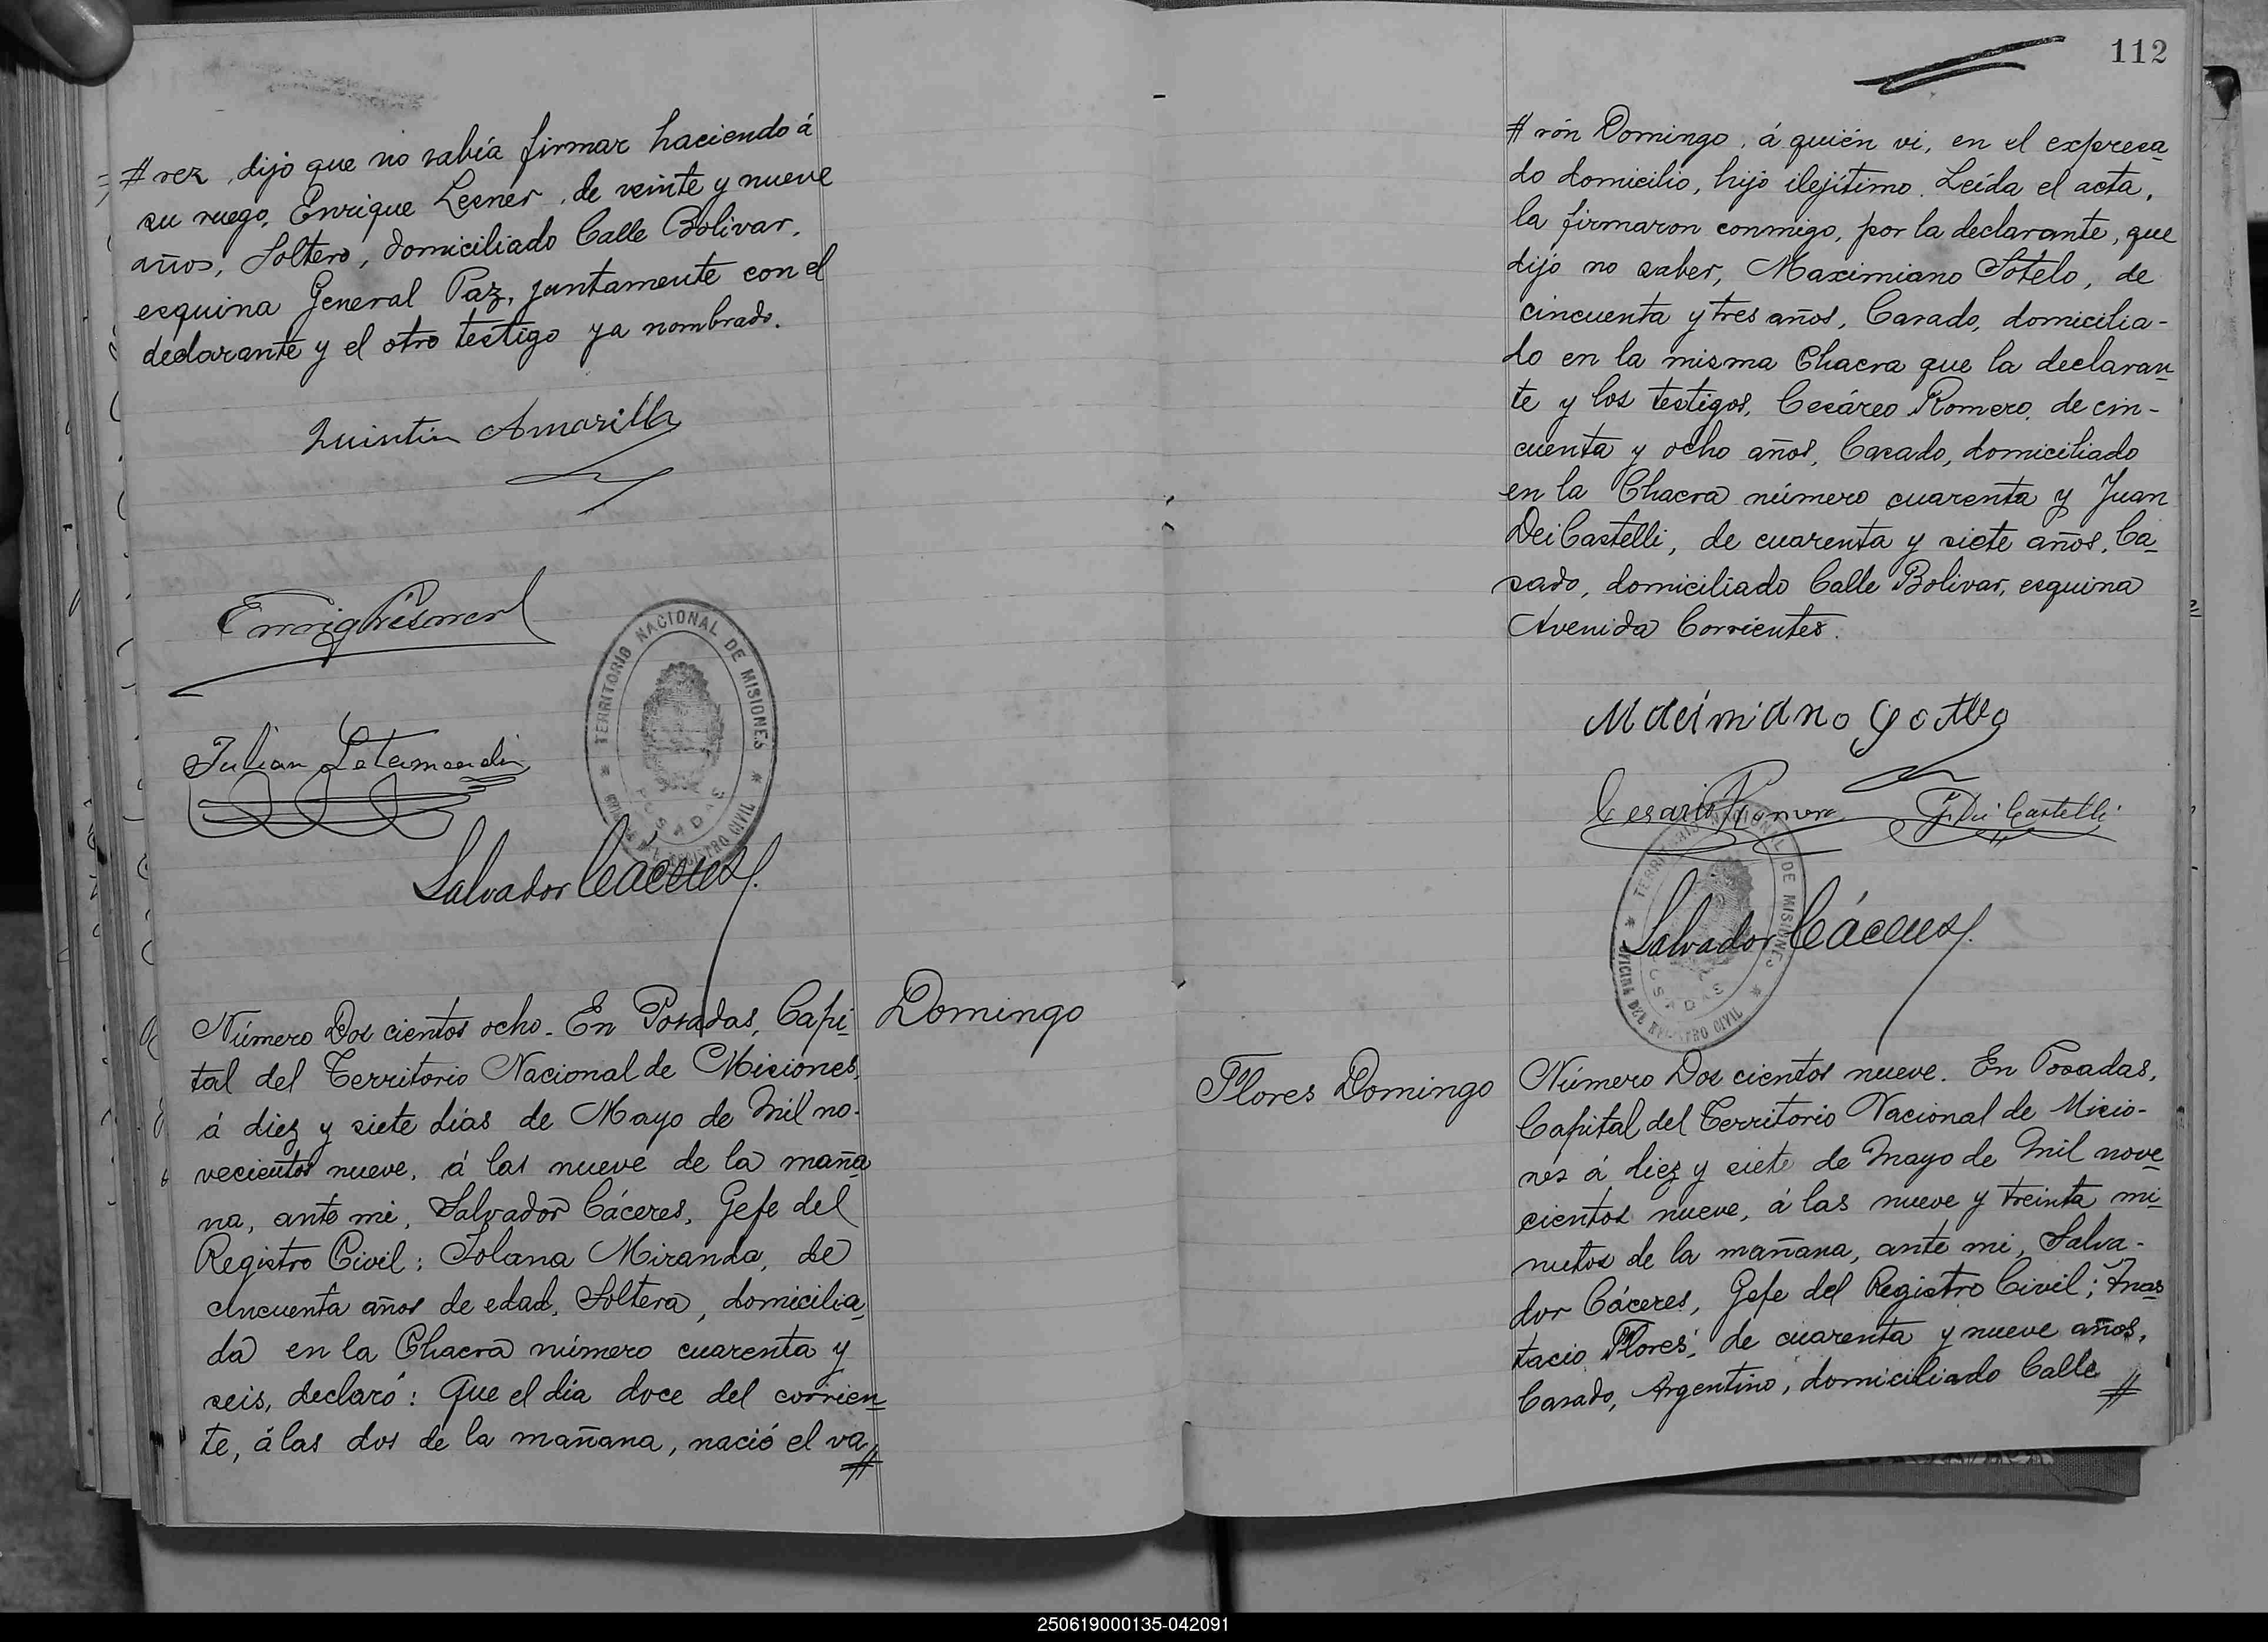 # rez, dijo que no sabía firmar haciendo á
su ruego, Enrique Lesner, de veinte y nueve
años, Soltero, domiciliado Calle Bolivar,
esquina General Paz, juntamente con el
declarante y el otro testigo ya nombrado.
Quintin Amarilla
Enrique Lesner
Julian Letamendi
TERRITORIO NACIONAL DE MISIONES
OFICINA DEL REGISTRO CIVIL
POSADAS
Salvador Cáceres
Número Dos cientos ocho. En Posadas, Capi-
tal del Territorio Nacional de Misiones,
á diez y siete dias de Mayo de Mil no-
vecientos nueve, á las nueve de la maña
na, ante mi, Salvador Cáceres, Gefe del
Registro Civil; Solana Miranda, de
cincuenta años de edad, Soltera, domicilia
da en la Chacra número cuarenta y
seis, declaró: Que el dia doce del corrien
te, á las dos de la mañana, nació el va #
Domingo
112
# rón Domingo, á quién vi, en el expresa
do domicilio, hijo ilejítimo. Leída el acta,
la firmaron conmigo, por la declarante, que
dijo no saber, Maximiano Sotelo, de
cincuenta y tres años, Casado, domicilia-
do en la misma Chacra que la declaran
te y los testigos, Cesáreo Romero, de cin-
cuenta y ocho años, Casado, domiciliado
en la Chacra número cuarenta y Juan
Dei Castelli, de cuarenta y siete años, Ca
sado, domiciliado Calle Bolivar, esquina
Avenida Corrientes.
Maximiano Sotelo
Cesario Romero J Dei Castelli
TERRITORIO NACIONAL DE MISIONES
OFICINA DEL REGISTRO CIVIL
POSADAS
Salvador Cáceres
Flores Domingo
Número Dos cientos nueve. En Posadas,
Capital del Territorio Nacional de Misio-
nes á diez y siete de Mayo de Mil nove
cientos nueve, á las nueve y treinta mi
nutos de la mañana, ante mi, Salva-
dor Cáceres, Gefe del Registro Civil; Anas
tacio Flores, de cuarenta y nueve años,
Casado, Argentino, domiciliado Calle #
250619000135-042091